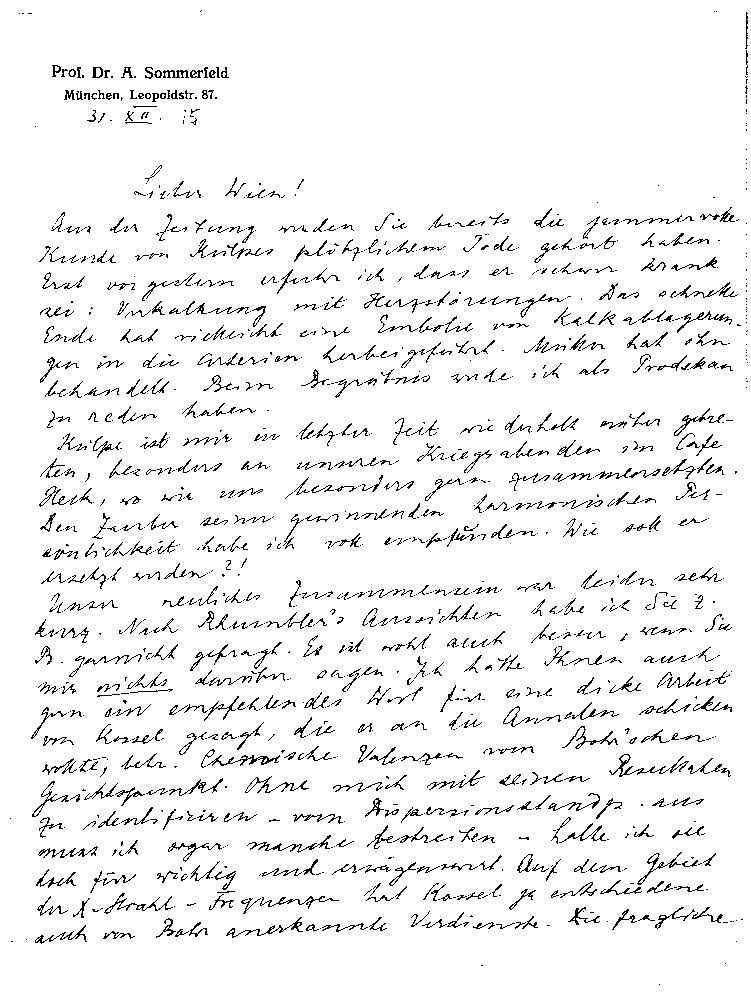 Prof. Dr. A. Sommerfeld
München, Leopoldstr. 87.
31. XII. 15
Lieber Wien!
Aus der Zeitung werden Sie bereits die jammervolle
Kunde von Külpes plötzlichem Tode gehört haben.
Erst vorgestern erfuhr ich, dass er schwer krank
sei: Verkalkung mit Herzstörungen. Das schnelle
Ende hat vielleicht eine Embolie von Kalkablagerun-
gen in die Arterien herbeigeführt. Müller hat ihn
behandelt. Beim Begräbnis werde ich als Prodekan
zu reden haben.
Külpe ist mir in letzter Zeit wiederholt näher getre-
ten, besonders an unseren Kriegsabenden im Cafe
Heck, wo wir uns besonders gern zusammensetzten.
Den Zauber seiner gewinnenden harmonischen Per-
sönlichkeit habe ich voll empfunden. Wie soll er
ersetzt werden?!
Unser neuliches Zusammensein war leider sehr
kurz. Nach Rhumbler's Aussichten habe ich Sie z.
B. garnicht gefragt. Es ist wohl auch besser, wenn Sie
mir nichts darüber sagen. Ich hätte Ihnen auch
gern ein empfehlendes Wort für eine dicke Arbeit
von Kossel gesagt, die er an die Annalen schicken
wollte, betr. Chemische Valenzen vom Bohr'schen
Gesichtspunkt. Ohne mich mit seinen Resultaten
zu identifiziren – vom Dispersionsstandp. aus
muss ich sogar manche bestreiten – halte ich sie
doch für wichtig und erwägenswert. Auf dem Gebiet
der X-Strahl-Frequenzen hat Kossel ja entschiedene
auch von Bohr anerkannte Verdienste. Die fragliche